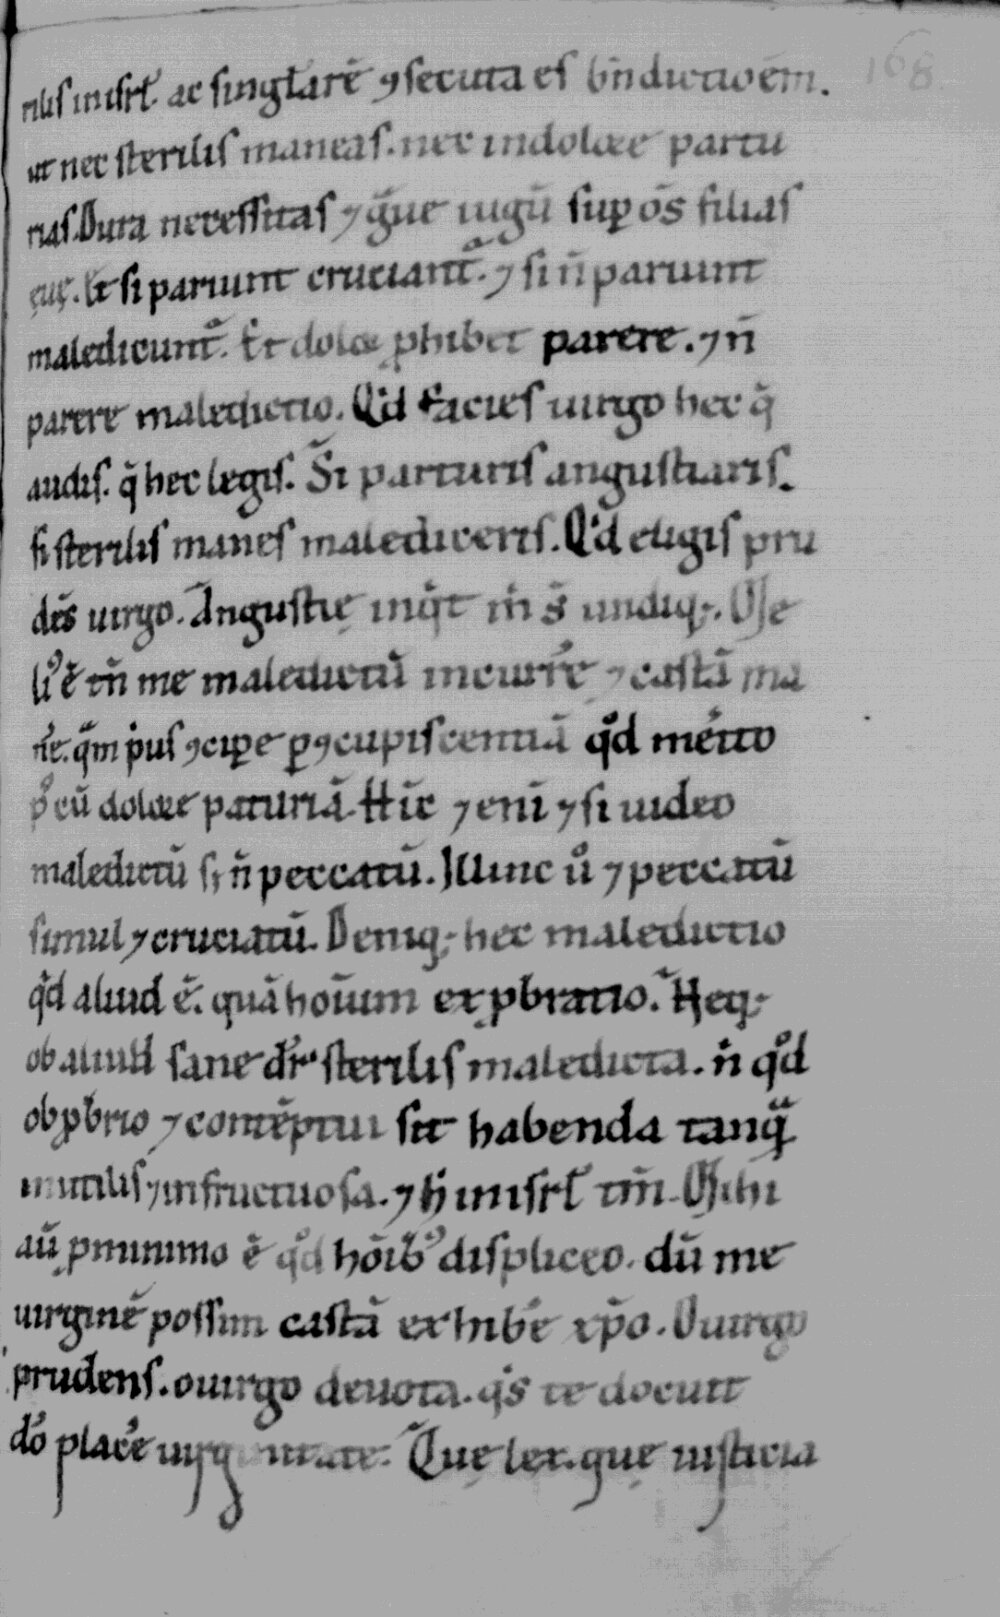 168
rilis in isrl̄. ac singl̄arē ꝯsecuta es bn̄dictioēm.
ut nec sterilis maneas. nec in dolore partu
rias. Dura necessitas ⁊ gͣue iugū suꝑ oēs filias
ęuę. Et si pariunt cruciant᷑. ⁊ si n̄ pariunt
maledicunt᷑. Et dolor ꝓhibet parere. ⁊ n̄
parere maledictio. Qͥd facies uirgo hec q̄
audis. q̄ hec legis. Si parturis angustiaris.
si sterilis manes malediceris. Qͥd eligis pru
dēs uirgo. Angustię inqͥt m̄ s̄ undiqꝫ. Me
liꝰ ē tn̄ me maledictū incurrͤe ⁊ castā ma
nͤe. qͣm pͥus ꝯciꝑe ꝑ ꝯcupiscentiā qͦd meͥto
pꝰ cū dolore paturiā. Hīc ⁊enī ⁊ si uideo
maledictū sꝫ n̄ peccatū. Illinc uͦ ⁊ peccatū
simul ⁊ cruciatū. Deniqꝫ hec maledictio
qͥd aliud ē. quā hoīum exꝓbratio. Neqꝫ
ob aliud sane dr̄ sterilis maledicta. n̄ qͦd
obꝓbrio ⁊ contēptui sit habenda tanqͣ
inutilis ⁊ infructuosa. ⁊ h̄ in isrl̄ tm̄. Mihi
aū ꝑ minimo ē qͦd hoīb᷒ displiceo. dū me
uirginē possim castā exhibͤe xp̄o. O uirgo
prudens. o uirgo deuota. qͥs te docuit
dō placͤe uirginitate. Quę lex. quę iusticia